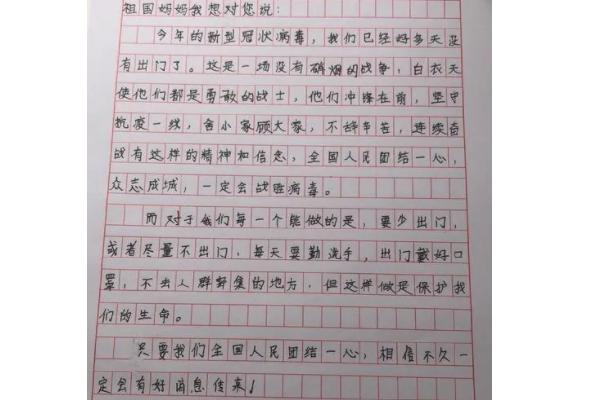 祖国妈妈我想对您说：
今年的新型冠状病毒，我们已经好多天没
有出门了。这是一场没有硝烟的战争，白衣天
使他们都是勇敢的战士，他们冲锋在前，坚守
抗疫一线，舍小家顾大家，不辞辛苦，连续奋
战有这样的精神和信念，全国人民团结一心，
众志成城，一定会战胜病毒。
而对于我们每一个能做的是，要少出门，
或者尽量不出门，每天要勤洗手，出门戴好口
罩，不去人群集的地方，但这样做是保护我
们的生命。
只要我们全国人民团结一心，相信不久一
定会有好消息传来！